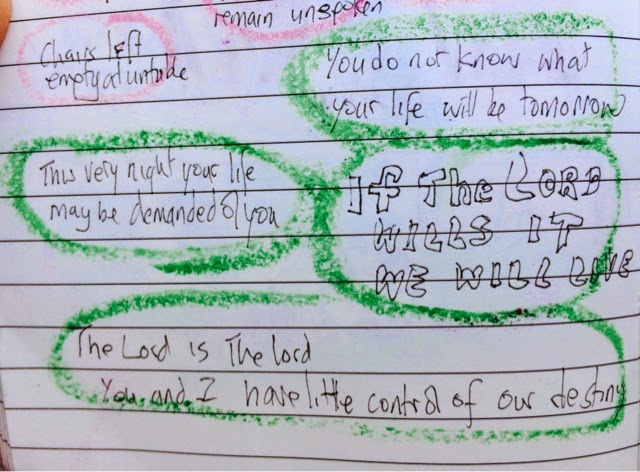 remain unspoken
Chairs left
empty at untable
You do not know what
your life will be tomorrow
This very night your life
may be demanded of you
If The LORD
WILLS IT
WE WILL LIVE
The Lord is The lord
You and I have little control of our destiny